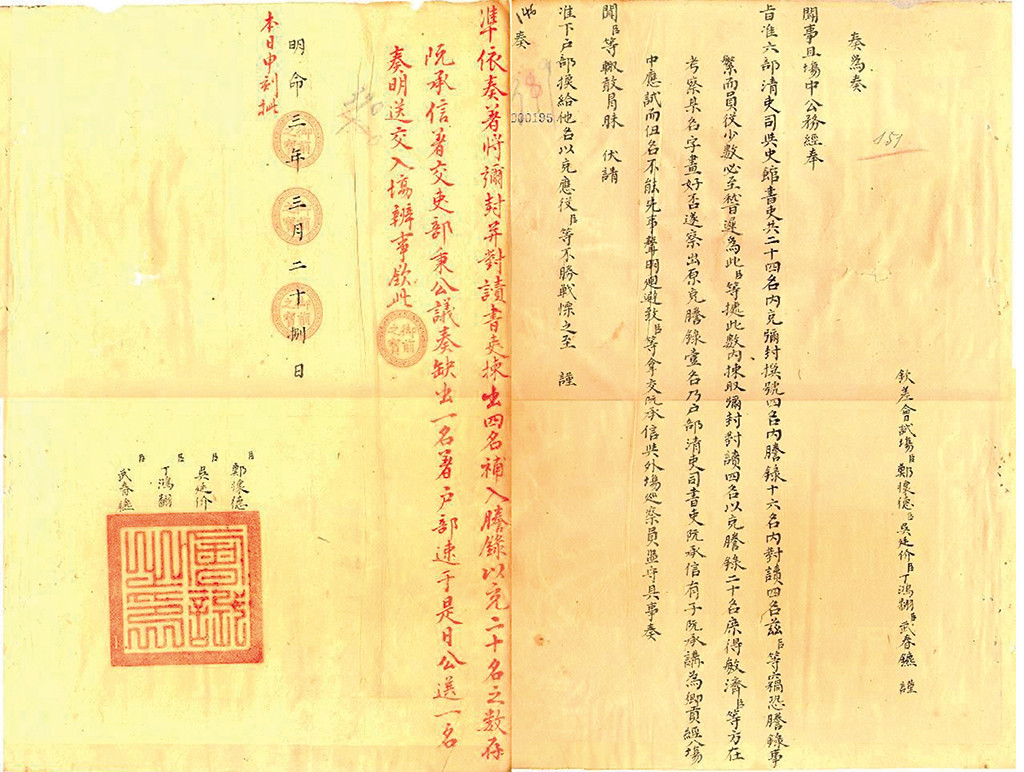 欽差會試場臣鄭懷德臣吳廷价臣丁鴻翻臣武春 謹
奏為奏
聞事且場中公務經奉
旨准六部清吏司與史館書吏共二十四名內充彌封換號四名內謄錄十六名內對讀四名茲臣等竊恐謄錄事
繁而員役少數必至稽遲為此臣等據此數內揀取彌封對讀四名以充謄錄二十名庶得敏濟臣等方在
考察某名字畫好否遂察出原充謄錄壹名乃戶部清吏司書吏阮承信有子阮承講為鄉貢經入場
中應試而伊名不能先事聲明廻避致臣等拿交阮承信與外場巡察員監守具事奏
聞臣等輙敢局脉 伏請
准下戶部換給他名以充應役臣等不勝戰慄之至 謹
奏
146
151
000195
準依奏著將彌封并對讀書吏揀出四名補入謄錄以充二十名之數存
阮承信著交吏部秉公議奏缺出一名著戶部速于是日公送一名
奏明送交入場辦事欽此
御前之寶
明命三年三月二十捌日
本日中刻批
臣鄭懷德
臣吳廷价
臣丁鴻翻
臣武春
會試之印